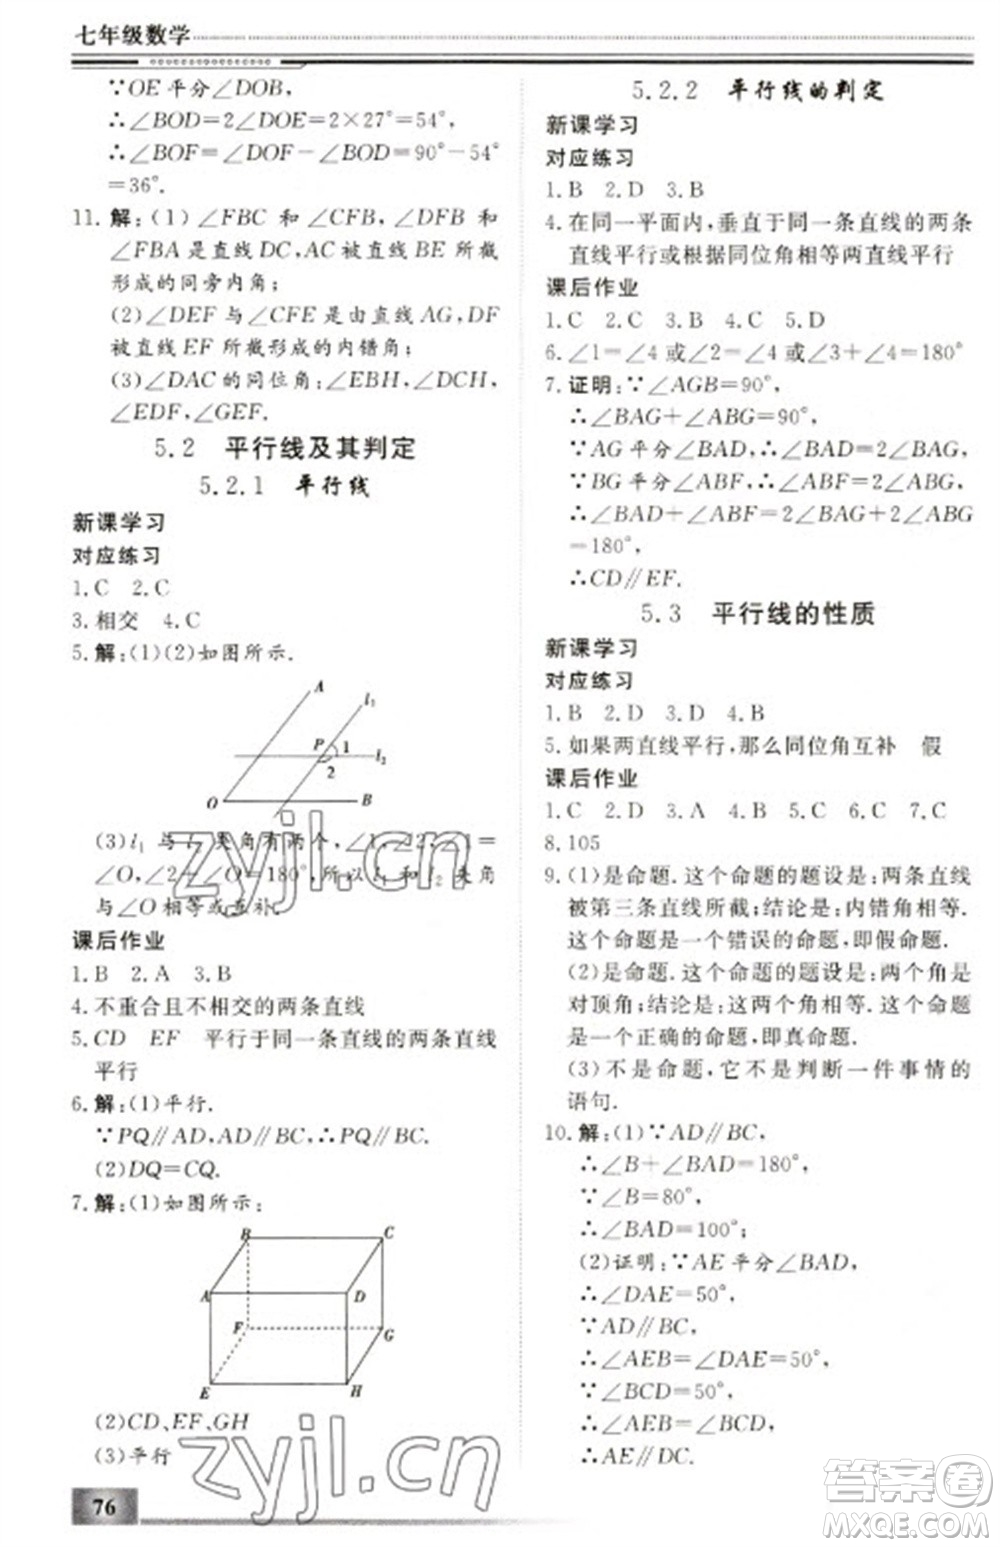 七年级数学
∵OE平分∠DOB，
∴∠BOD=2∠DOE=2×27°=54°，
∴∠BOF=∠DOF-∠BOD=90°-54°
=36°.
11. 解：(1)∠FBC 和 ∠CFB，∠DFB 和
∠FBA是直线DC，AC被直线BE所截
形成的同旁内角；
(2)∠DEF与∠CFE是由直线AG，DF
被直线EF所截形成的内错角；
(3)∠DAC的同位角：∠EBH，∠DCH，
∠EDF，∠GEF.
5.2 平行线及其判定
5.2.1 平行线
新课学习
对应练习
1.C 2.C
3.相交 4.C
5.解：(1)(2)如图所示.
A
l₁
P
1
l₂
2
O
B
(3)l₁与l₂夹角有两个，∠1，∠2，∠1=
∠O，∠2+∠O=180°，所以l₁和l₂夹角
与∠O相等或互补.
课后作业
1.B 2.A 3.B
4.不重合且不相交的两条直线
5.CD EF 平行于同一条直线的两条直线
平行
6.解：(1)平行.
∵PQ∥AD，AD∥BC，∴PQ∥BC.
(2)DQ=CQ.
7.解：(1)如图所示：
B
C
A
D
F
G
E
H
(2)CD，EF，GH
(3)平行
76
5.2.2 平行线的判定
新课学习
对应练习
1.B 2.D 3.B
4.在同一平面内，垂直于同一条直线的两条
直线平行或根据同位角相等两直线平行
课后作业
1.C 2.C 3.B 4.C 5.D
6.∠1=∠4或∠2=∠4或∠3+∠4=180°
7.证明：∵∠AGB=90°，
∴∠BAG+∠ABG=90°，
∵AG平分∠BAD，∴∠BAD=2∠BAG，
∵BG平分∠ABF，∴∠ABF=2∠ABG，
∴∠BAD+∠ABF=2∠BAG+2∠ABG
=180°，
∴CD∥EF.
5.3 平行线的性质
新课学习
对应练习
1.B 2.D 3.D 4.B
5.如果两直线平行，那么同位角互补 假
课后作业
1.C 2.D 3.A 4.B 5.B 6.C 7.C
8.105
9.(1)是命题.这个命题的题设是：两条直线
被第三条直线所截；结论是：内错角相等.
这个命题是一个错误的命题，即假命题.
(2)是命题.这个命题的题设是：两个角是
对顶角；结论是：这两个角相等.这个命题
是一个正确的命题，即真命题.
(3)不是命题，它不是判断一件事情的
语句.
10.解：(1)∵AD∥BC，
∴∠B+∠BAD=180°，
∵∠B=80°，
∴∠BAD=100°；
(2)证明：∵AE平分∠BAD，
∴∠DAE=50°，
∵AD∥BC，
∴∠AEB=∠DAE=50°，
∵∠BCD=50°，
∴∠AEB=∠BCD，
∴AE∥DC.
zyjl.cn
zyjl.cn
答案卷
MXQE.COM